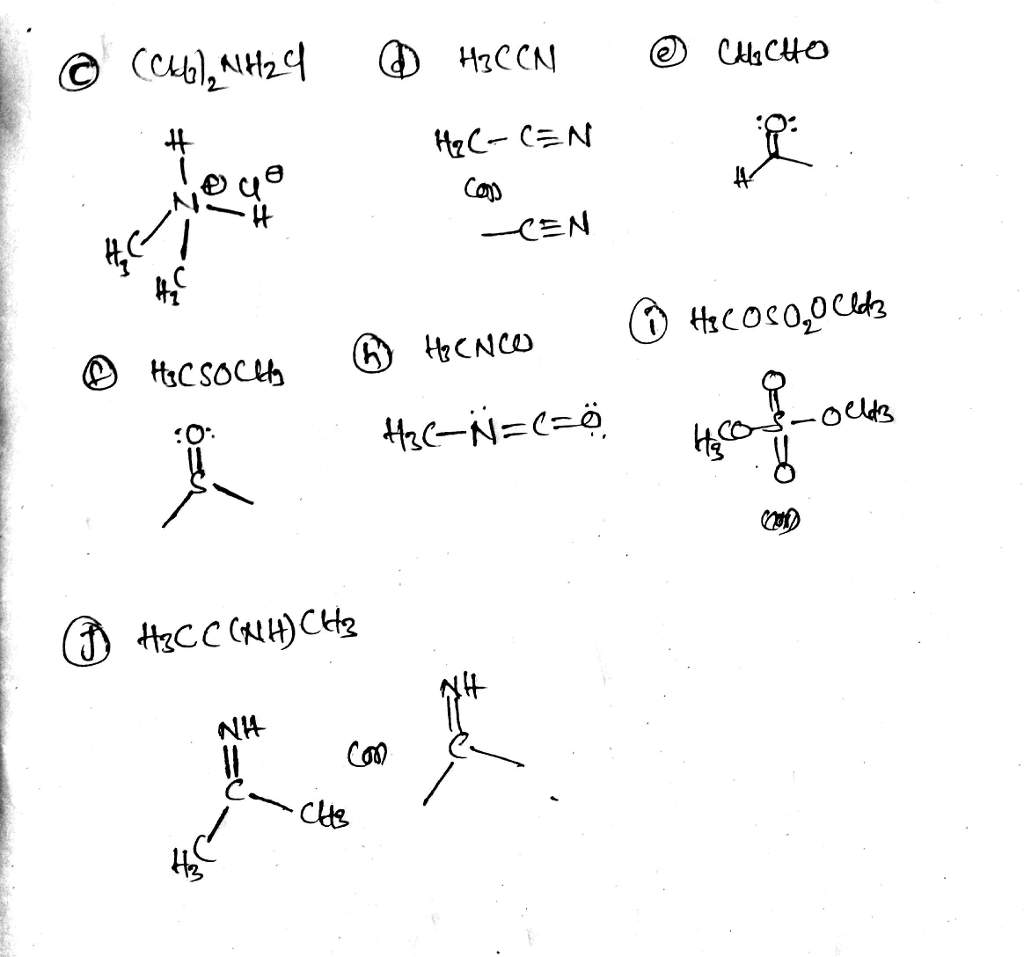 ⓒ (CH3)2NH2Cl ⓓ H3CCN ⓔ CH3CHO
H
N ⊕ Cl ⊖
H
H3C
H3C
H3C-C≡N
(or)
-C≡N
:O:
H
ⓕ H3CSOCH3 ⓗ H3CNCO ⓘ H3COSO2OCH3
:O:
S
H3C-N̈=C=Ö:
O
H3CO-S-OCH3
O
(or)
ⓙ H3CC(NH)CH3
NH
C
CH3
H3C
(or)
NH
C